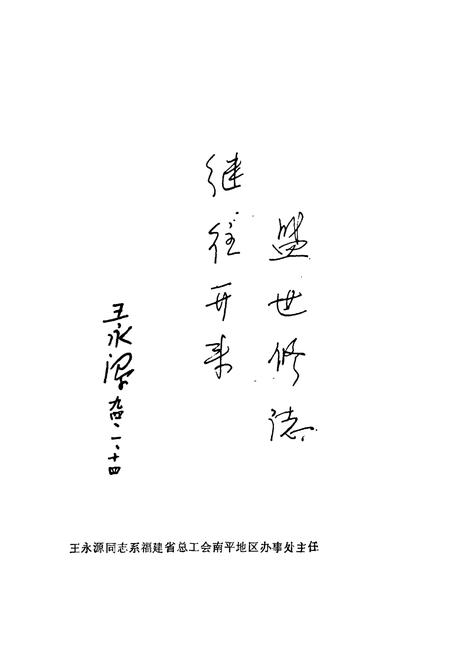 盛世修志
继往开来
王永源
九四、一、十四
王永源同志系福建省总工会南平地区办事处主任